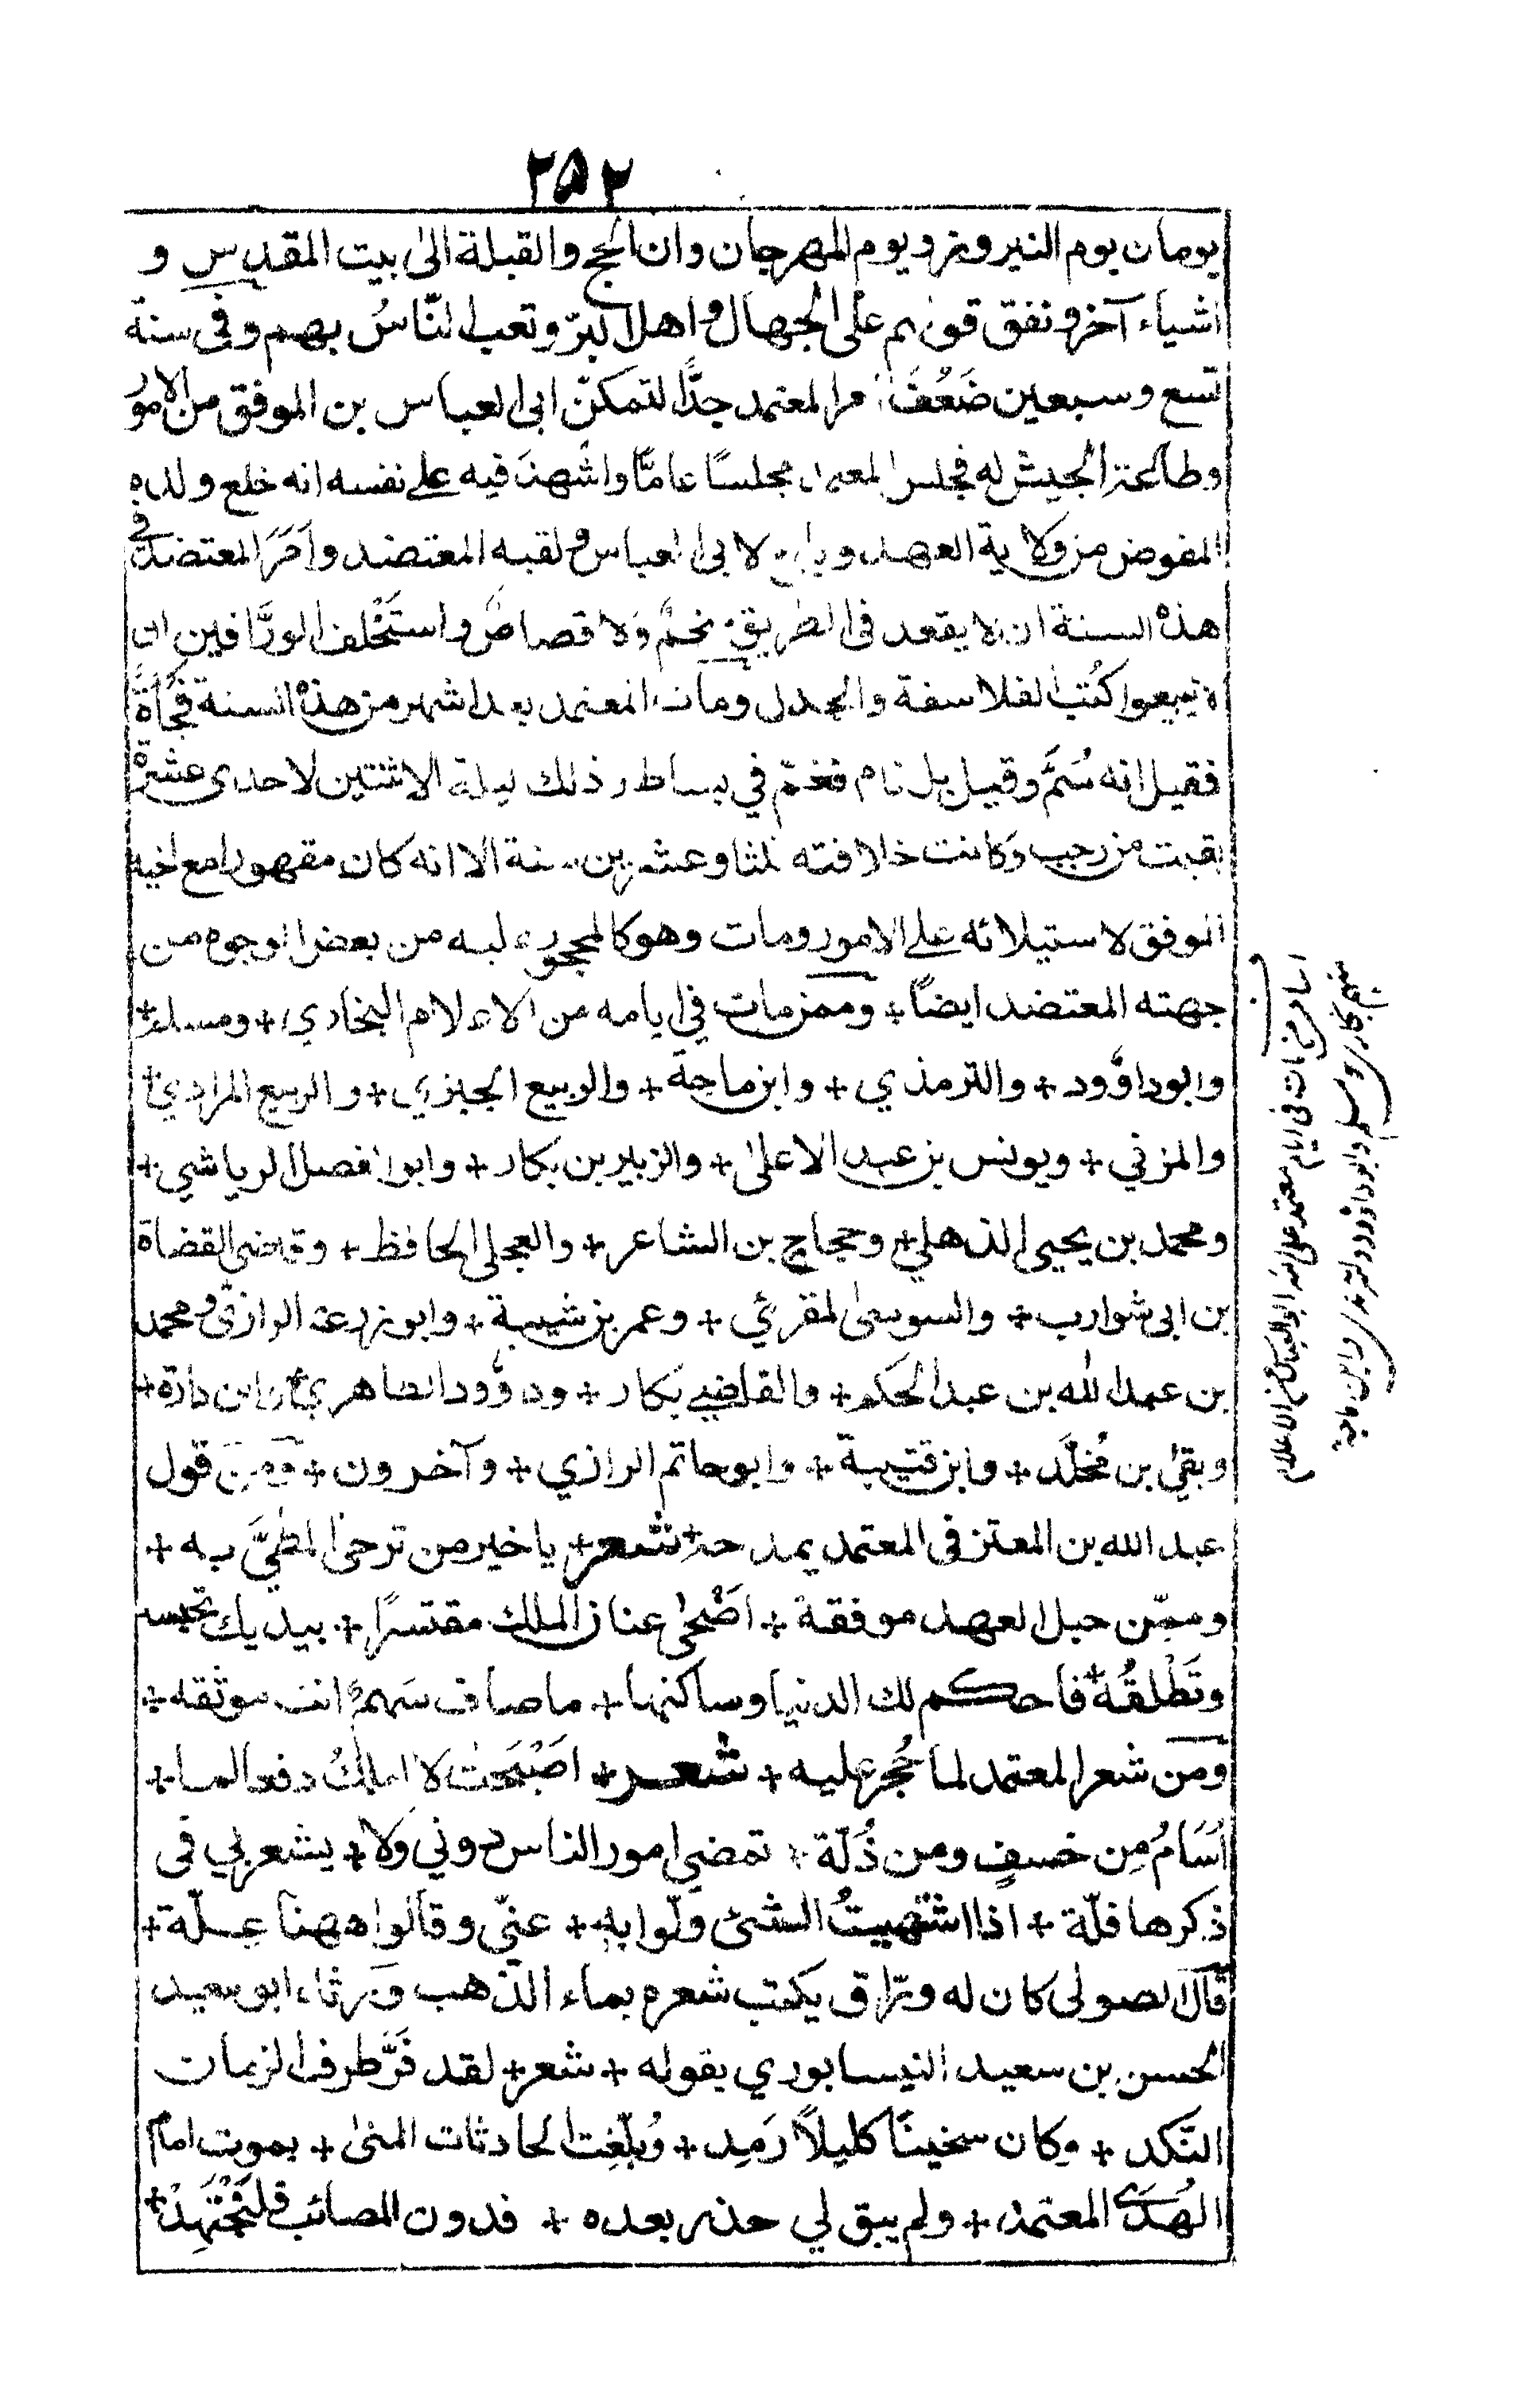 ۲۵۲
يومان يوم النيروز ويوم المهرجان وان الحج والقبلة الى بيت المقدس و
اشياء آخر ونفق قولهم على الجهال واهل البرّ وتعب النّاسُ بهم وفى سنة
تسع وسبعين ضَعُفَ امر المعتمد جدًّا لتمكّن ابى العباس بن الموفق من الامور
وطاعة الجيش له فجلس المعتمد مجلسًا عامًّا واشهدَ فيه على نفسه انه خلع ولده
المفوض من ولاية العهد وبايع لابى العباس ولقبه المعتضد وامَرَ المعتضد فى
هذه السنة ان لا يقعد فى الطريق منجمٌ ولا قصاصٌ واستَحْلف الورَّاقين ان
لا يبيعوا كُتب الفلاسفة والجدل ومات المعتمد بعد اشهر من هذه السنة فُجأةً
فقيل انه سُمَّ وقيل بل نام فغمّ في بساط وذلك ليلة الاثنين لاحدى عشرة
بقيت من رجب وكانت خلافته ثلثا وعشرين سنة الا انه كان مقهورا مع اخيه
الموفق لاستيلائه على الامور ومات وهو كالمحجور عليه من بعض الوجوه من
جهته المعتضد ايضاً + وممن مات في ايامه من الاعلام البخاري + ومسلم +
وابو داوٗد + والترمذي + وابن ماجة + والربيع الجيزي + والربيع المرادي +
والمزني + ويونس بن عبد الاعلى + والزبير بن بكار + وابو الفضل الرياشي +
ومحمد بن يحيى الذهلي + وحجاج بن الشاعر + والعجلى الحافظ + وقاضى القضاة
بن ابى شوارب + والسوسى المقرئي + وعمر بن شبيبة + وابو زرعة الرازي + ومحمد
بن عبد الله بن عبد الحكم + والقاضي بكار + ودوٗود الظاهري + وابن دارة +
وبقي بن مُخلَّد + وابن قتيبة + وابو حاتم الرازي + وآخرون + ومن قول
عبد الله بن المعتز فى المعتمد يمدحه + شعر + ياخير من ترجى المطيَّ به +
وممّن حبل العهد موفقة + اضْحى عنان الملك مقتسرًا + بيديك تحبسه
وتَطْلقُهٗ + فاحكم لك الدنيا وساكنها + ما صاف سَهمٌ انت موثقه +
ومن شعر المعتمد لما حُجر عليه + شعر + اصْبَحت لا املكُ دفعا لما +
اُسَامُ مِن خسفٍ ومن ذُلّة + تمضي امور الناس دوني ولا + يشعر بي فى
ذكرها قلّة + اذا اشتهيتُ الشئ ولّوا به + عنّي وقالوا ههنا عِلّة +
قال الصولى كان له ورّاق يكتب شعره بماء الذهب ورثاه ابو سعيد
الحسن بن سعيد النيسابوري بقوله + شعر + لقد قَرَّ طرف الزمان
النّكد + وكان سخينًا كليلًا رَمِد + وبُلّغت الحادثات المنى + بموت امام
الهُدى المعتمد + ولم يبق لي حذر بعده + فدون المصائب فلتَجْتَهِدْ +
اسامى من مات فى ايام معتمد على الله ابو العباس من الاعلام
منهم بخارى ومسلم وابو داوٗد وترمذى وابن ماجة